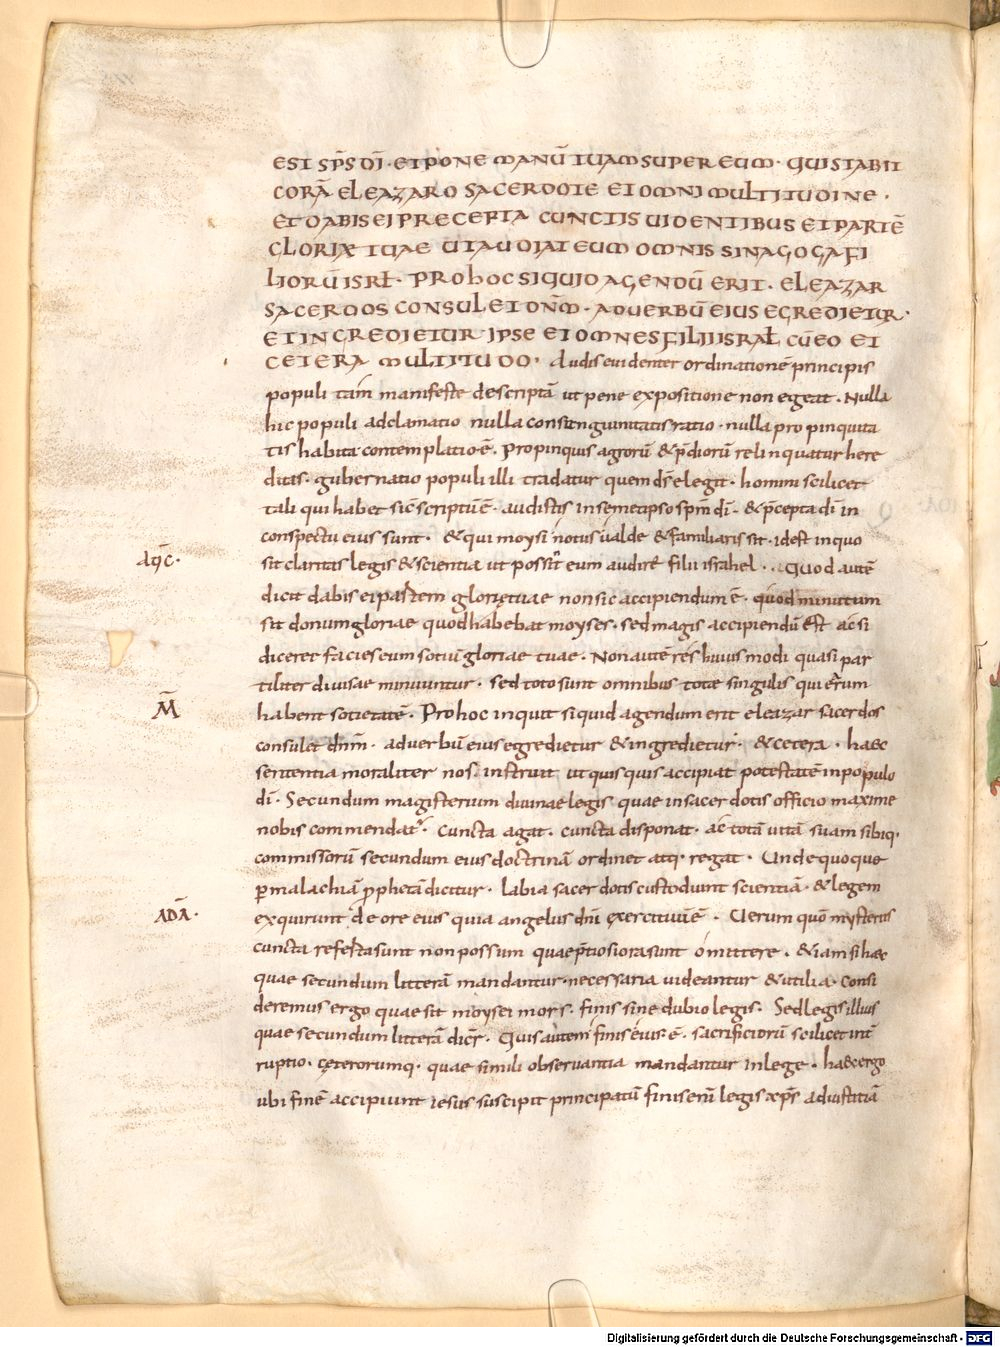 EST SP̄S DĪ · ET PONE MANŪ TUAM SUPER EUM · QUI STABIT
CORĀ ELEAZARO SACERDOTE ET OMNI MULTITUDINE ·
ET DABIS EI PRECEPTA CUNCTIS UIDENTIBUS ET PARTĒ
GLORIĘ TUAE UT AUDIAT EUM OMNIS SINAGOGA FI
LIORŪ ISRL̄ · PRO HOC SI QUID AGENDŪ ERIT · ELEAZAR
SACERDOS CONSULET DN̄M · AD UERBŪ EIUS EGREDIETUR ·
ET INGREDIETUR IPSE ET OMNES FILII ISRAL̄ CŪ EO ET
CETERA MULTITUDO · Audis euidenter ordinationē principis
populi tam manifeste descriptā ut pene expositione non egeat · Nulla
hic populi adclamatio nulla consanguinitatis ratio · nulla propinquita
tis habita contemplatio ē · Propinquis agrorū & p̄diorū relinquatur here
ditas · gubernatio populi illi tradatur quem ds̄ elegit · homini scilicet
tali qui habet sic̄ scriptū ē · audistis in semetipso spm̄ dī · & p̄cepta dī in
conspectu eius sunt · & qui moysi notus ualde & familiaris sit · idest in quo
sit claritas legis & scientia ut possint eum audire filii israhel · Quod autē
dicit dabis ei partem glorię tuae non sic accipiendum ē · quod minutum
sit donum gloriae quod habebat moyses · sed magis accipiendū est ac si
diceret facies eum sotiū gloriae tuae · Non autē res huius modi quasi par
tiliter diuisae minuuntur · sed toto sunt omnibus totae singulis qui earum
habent sotietatē · Pro hoc inquit si quid agendum erit eleazar sacerdos
consulet dnm̄ · ad uerbū eius egredietur & ingredietur · & cetera · haec
sententia moraliter nos instruit ut quisquis accipiat potestatē in populo
dī · Secundum magisterium diuinae legis quae in sacerdotis officio maxime
nobis commendat᷑ · cuncta agat · cuncta disponat · ac totā uitā suam sibiq·
commissorū secundum eius doctrinā ordinet atq· regat · Unde quoque
p̄ malachiā ꝓphetā dicitur · labia sacerdotis custodiunt scientiā · & legem
exquirunt de ore eius quia angelus dn̄i exercituū ē · Uerum quō mysteriis
cuncta referta sunt non possum quae p̄tiosiora sunt omittere · & iam si haec
quae secundum litterā mandantur · necessaria uideantur & utilia · Consi
deremus ergo quae sit moysei mors · finis sine dubio legis · Sed legis illius
quae secundum litterā dicr̄ · Quis autem finis eius · ē · sacrificiorū scilicet int̄
ruptio · ceterorumq· quae simili obseruantia mandantur in lege · haec ergo
ubi finē accipiunt iesus suscipit principatū finis enī legis xp̄s ad iustitiā
M̄
ADĀ·